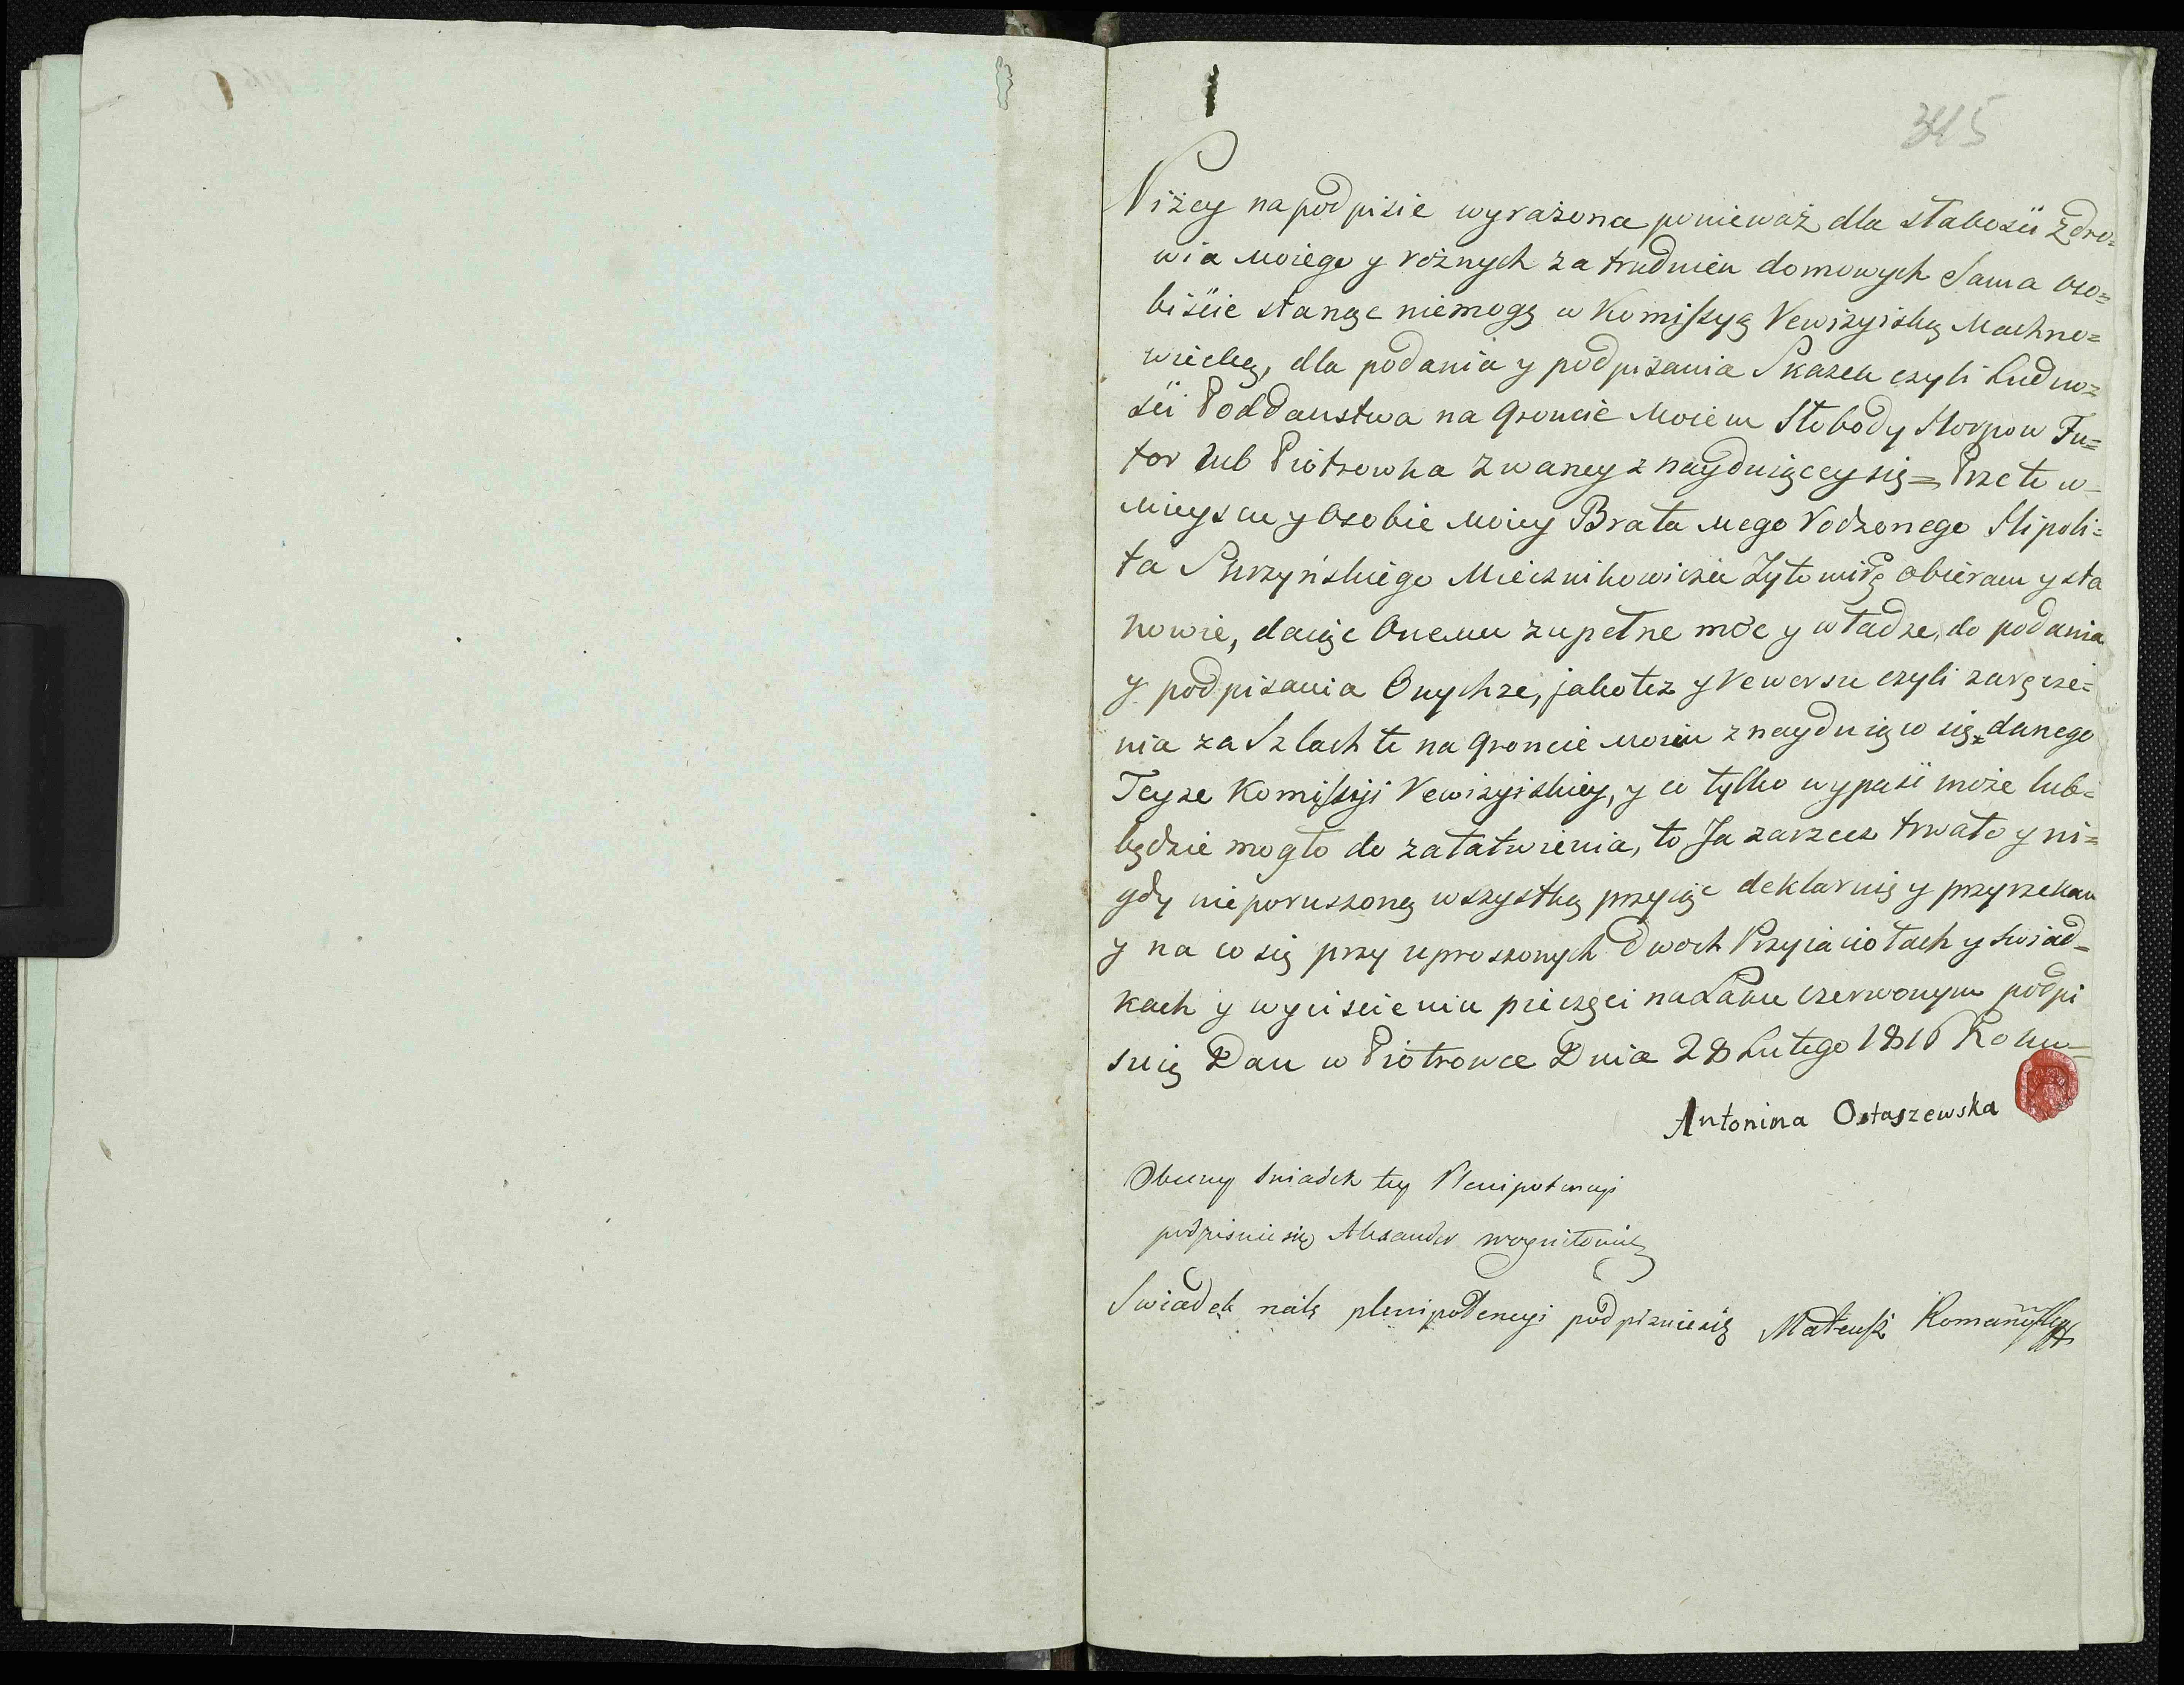 345
Niżey na podpisie wyrażona ponieważ dla słabości Zdro=
wia Moiego y rożnych zatrudnień domowych Sama oso=
biście stanąc niemogą w Komissyą Rewizyiską Machno=
wiecką, dla podania y podpisania Skazek czyli Ludno=
ści Poddaństwa na Groncie Moiem Słobody Fu=
tor lub Piotrowka zwaney znayduiącey się = Przeto w
Mieyscu y Osobie Moiey Brata mego Rodzonego Hipoli=
ta Mieicznikowicza Zytomirs obieram y sta
nowie, daiąc Onemu zupełne moc y władze, do podania
y podpisania Onychze, jako tez y Rewersu czyli zaręcze=
nia za Szlachte na Groncie moim znayduiąco się danego
Teyze Komissyi Rewizyiskiey, y co tylko wypaść może lub=
będzie mogło do załatwienia, to Ja zarzecz trwało y ni=
gdy nieporuszoną wszystką przyiąc deklaruię y przyrzekam
y na co się przy uproszonych dwoch Przyiaciołach y swiad=
kach y wyciscieniu pieczęci na Laku czerwonym podpi
suię Dan w Piotrowce Dnia 28 Lutego 1816 Roku=
Antonina Ostaszewska
Obecny swiadek tey Plenipotencyi
podpisuie się Alexander
Swiadek plenipotencyi podpisuie się Mateusz Romański